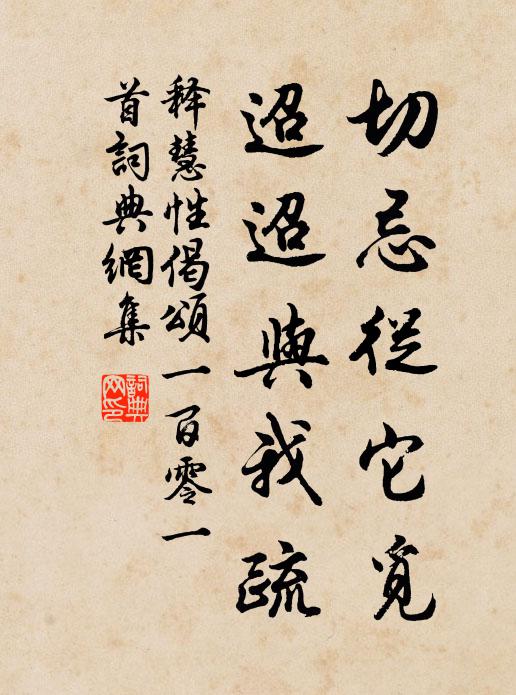 切忌從它覓
迢迢與我疏
释慧性偈頌一百零一
首詞典網集
詞典网印